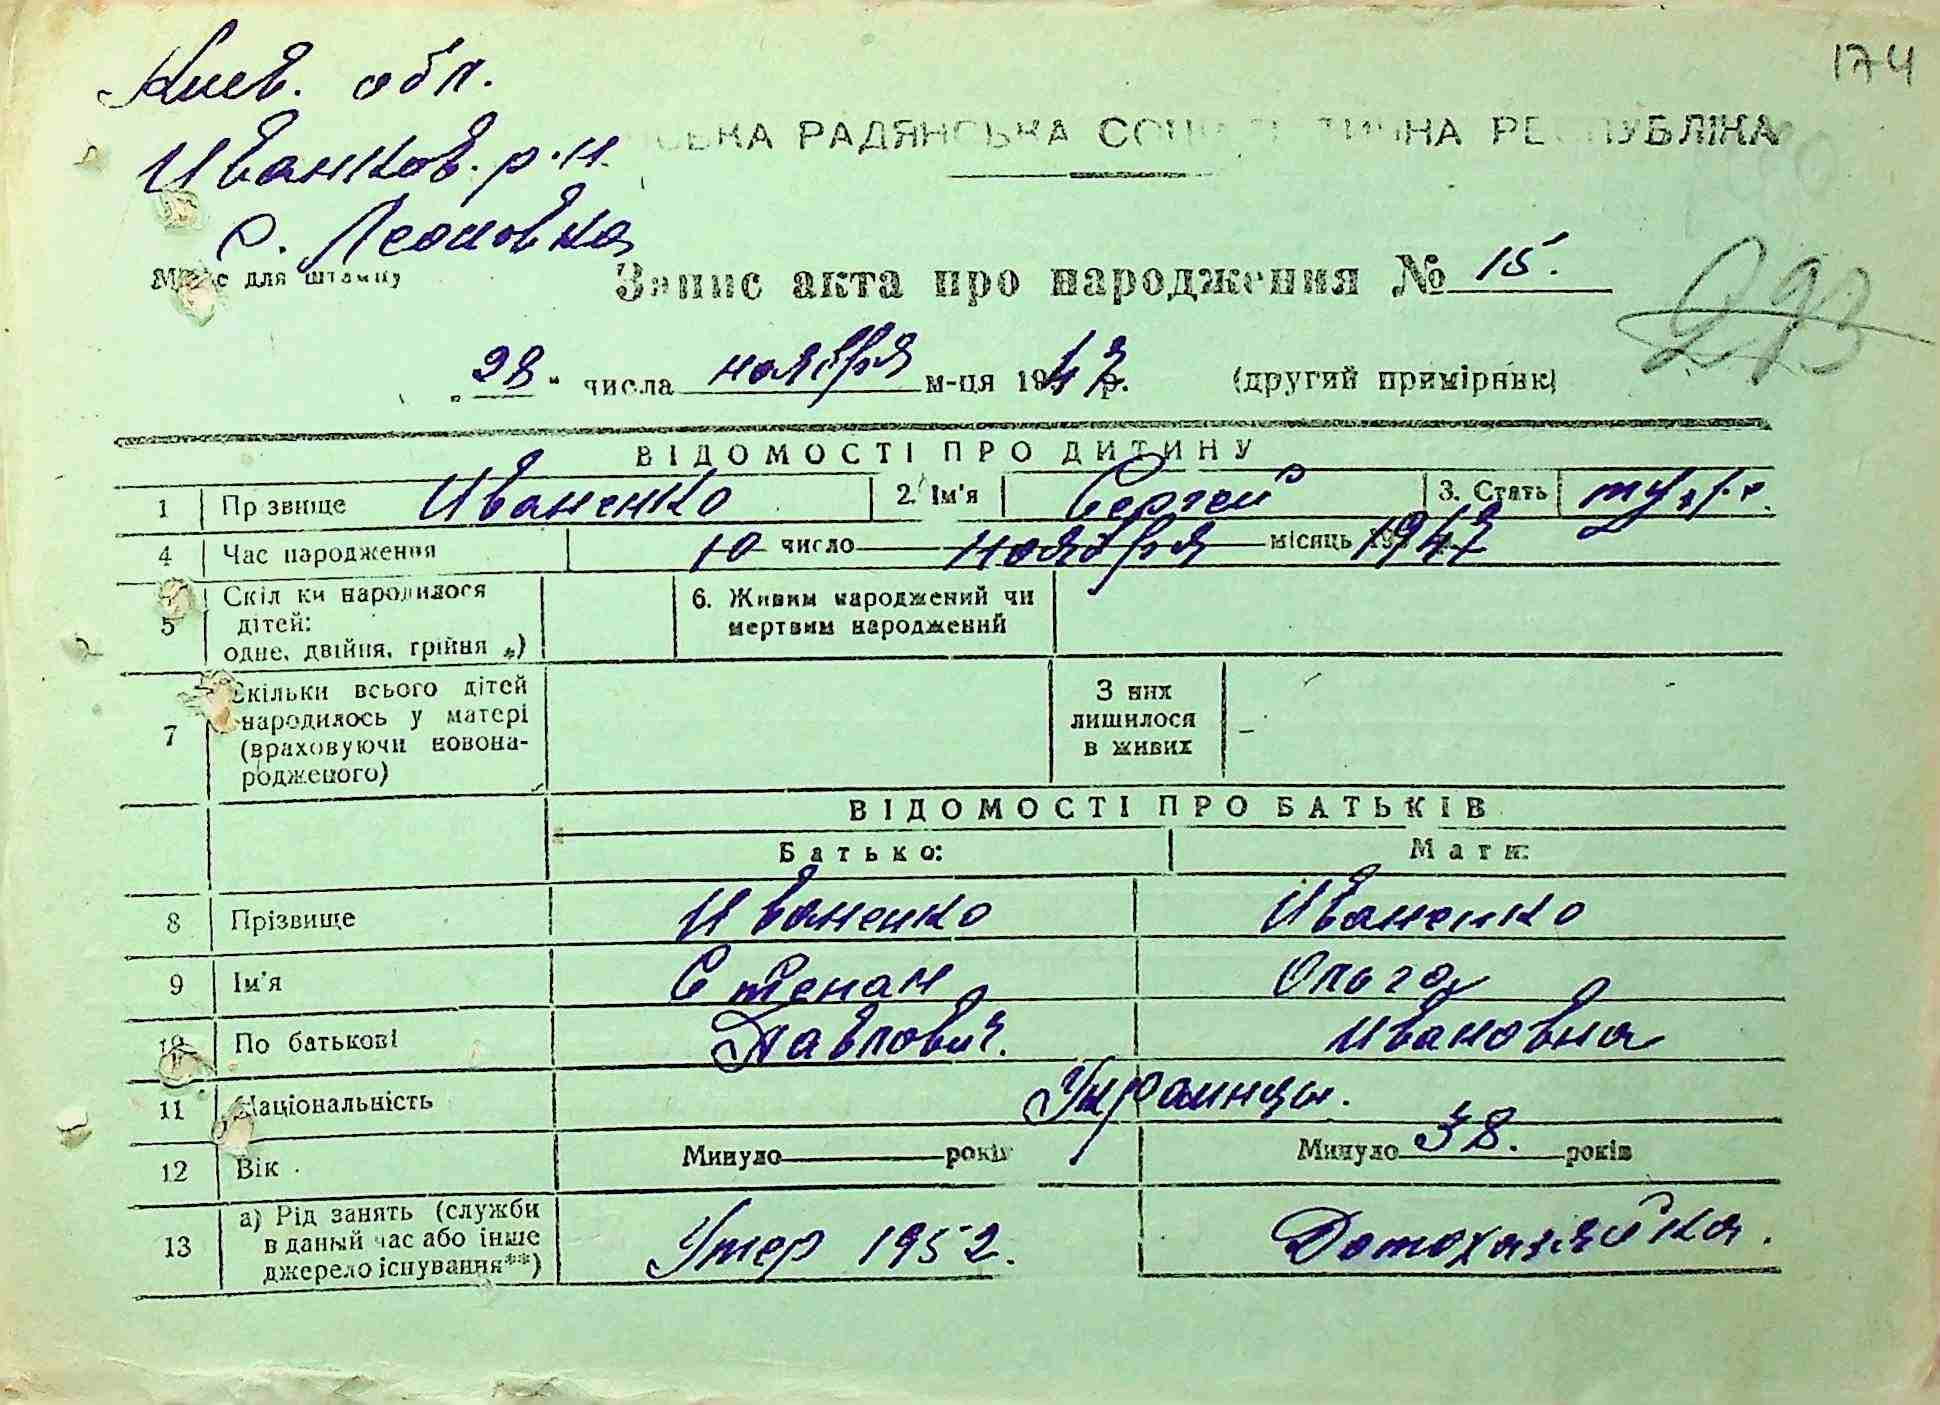 174
Киев. обл.
Иванков. р.н.
с. Леоновка
СЬКА РАДЯНСЬКА СОЦІАЛІСТИЧНА РЕСПУБЛІКА
Місце для штампу
Запис акта про народження № 15.
293
„28" числа ноября м-ця 1947 р. (другий примірник)
ВІДОМОСТІ ПРО ДИТИНУ
1 Прізвище Иваненко 2. Ім'я Сергей 3. Стать муж.
4 Час народження 10 число ноября місяць 1947
5 Скільки народилося дітей: одне, двійня, трійня *) 6. Живим народжений чи мертвим народжений
7 Скільки всього дітей народилось у матері (враховуючи новонародженого) З них лишилося в живих -
ВІДОМОСТІ ПРО БАТЬКІВ
Батько: Мати:
8 Прізвище Иваненко Иваненко
9 Ім'я Степан Ольга
10 По батькові Павлович. Ивановна
11 Національність Украинцы.
12 Вік Минуло років Минуло 38. років
13 а) Рід занять (служби в даный час або інше джерело існування**) Умер 1952. Домохазяйка.